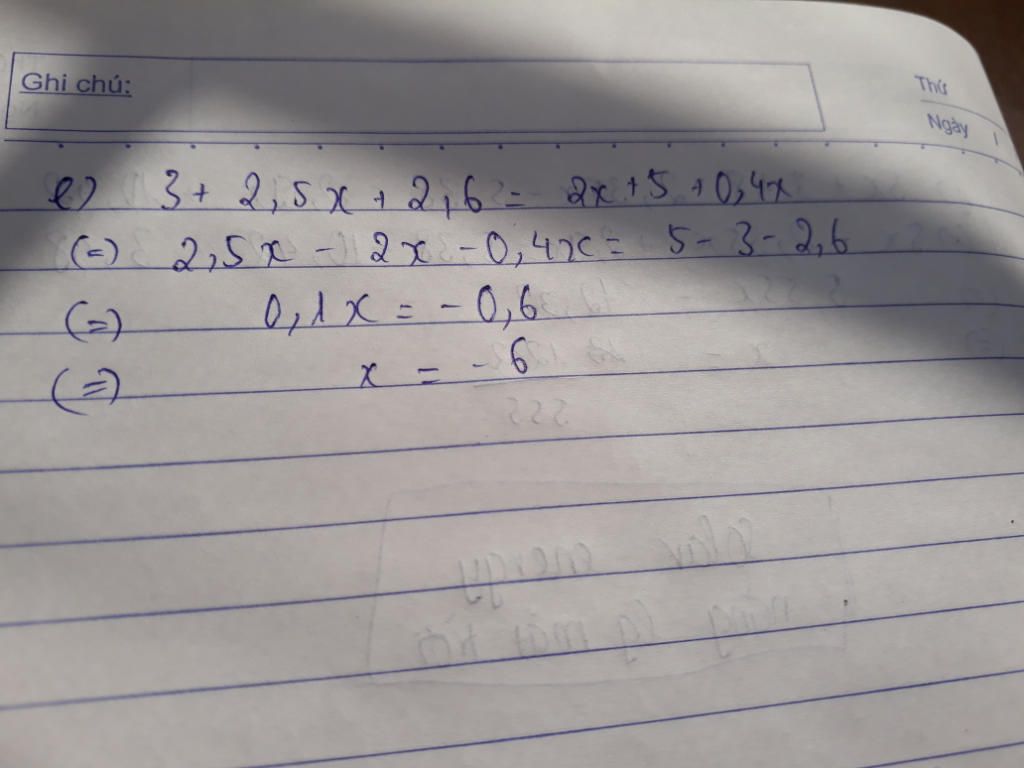 Ghi chú:
Thứ
Ngày
e) 3 + 2,5x + 2,6 = 2x + 5 + 0,4x
(=) 2,5x - 2x - 0,4x = 5 - 3 - 2,6
(=) 0,1x = - 0,6
(=) x = - 6
solar energy
năng lg mặt trời